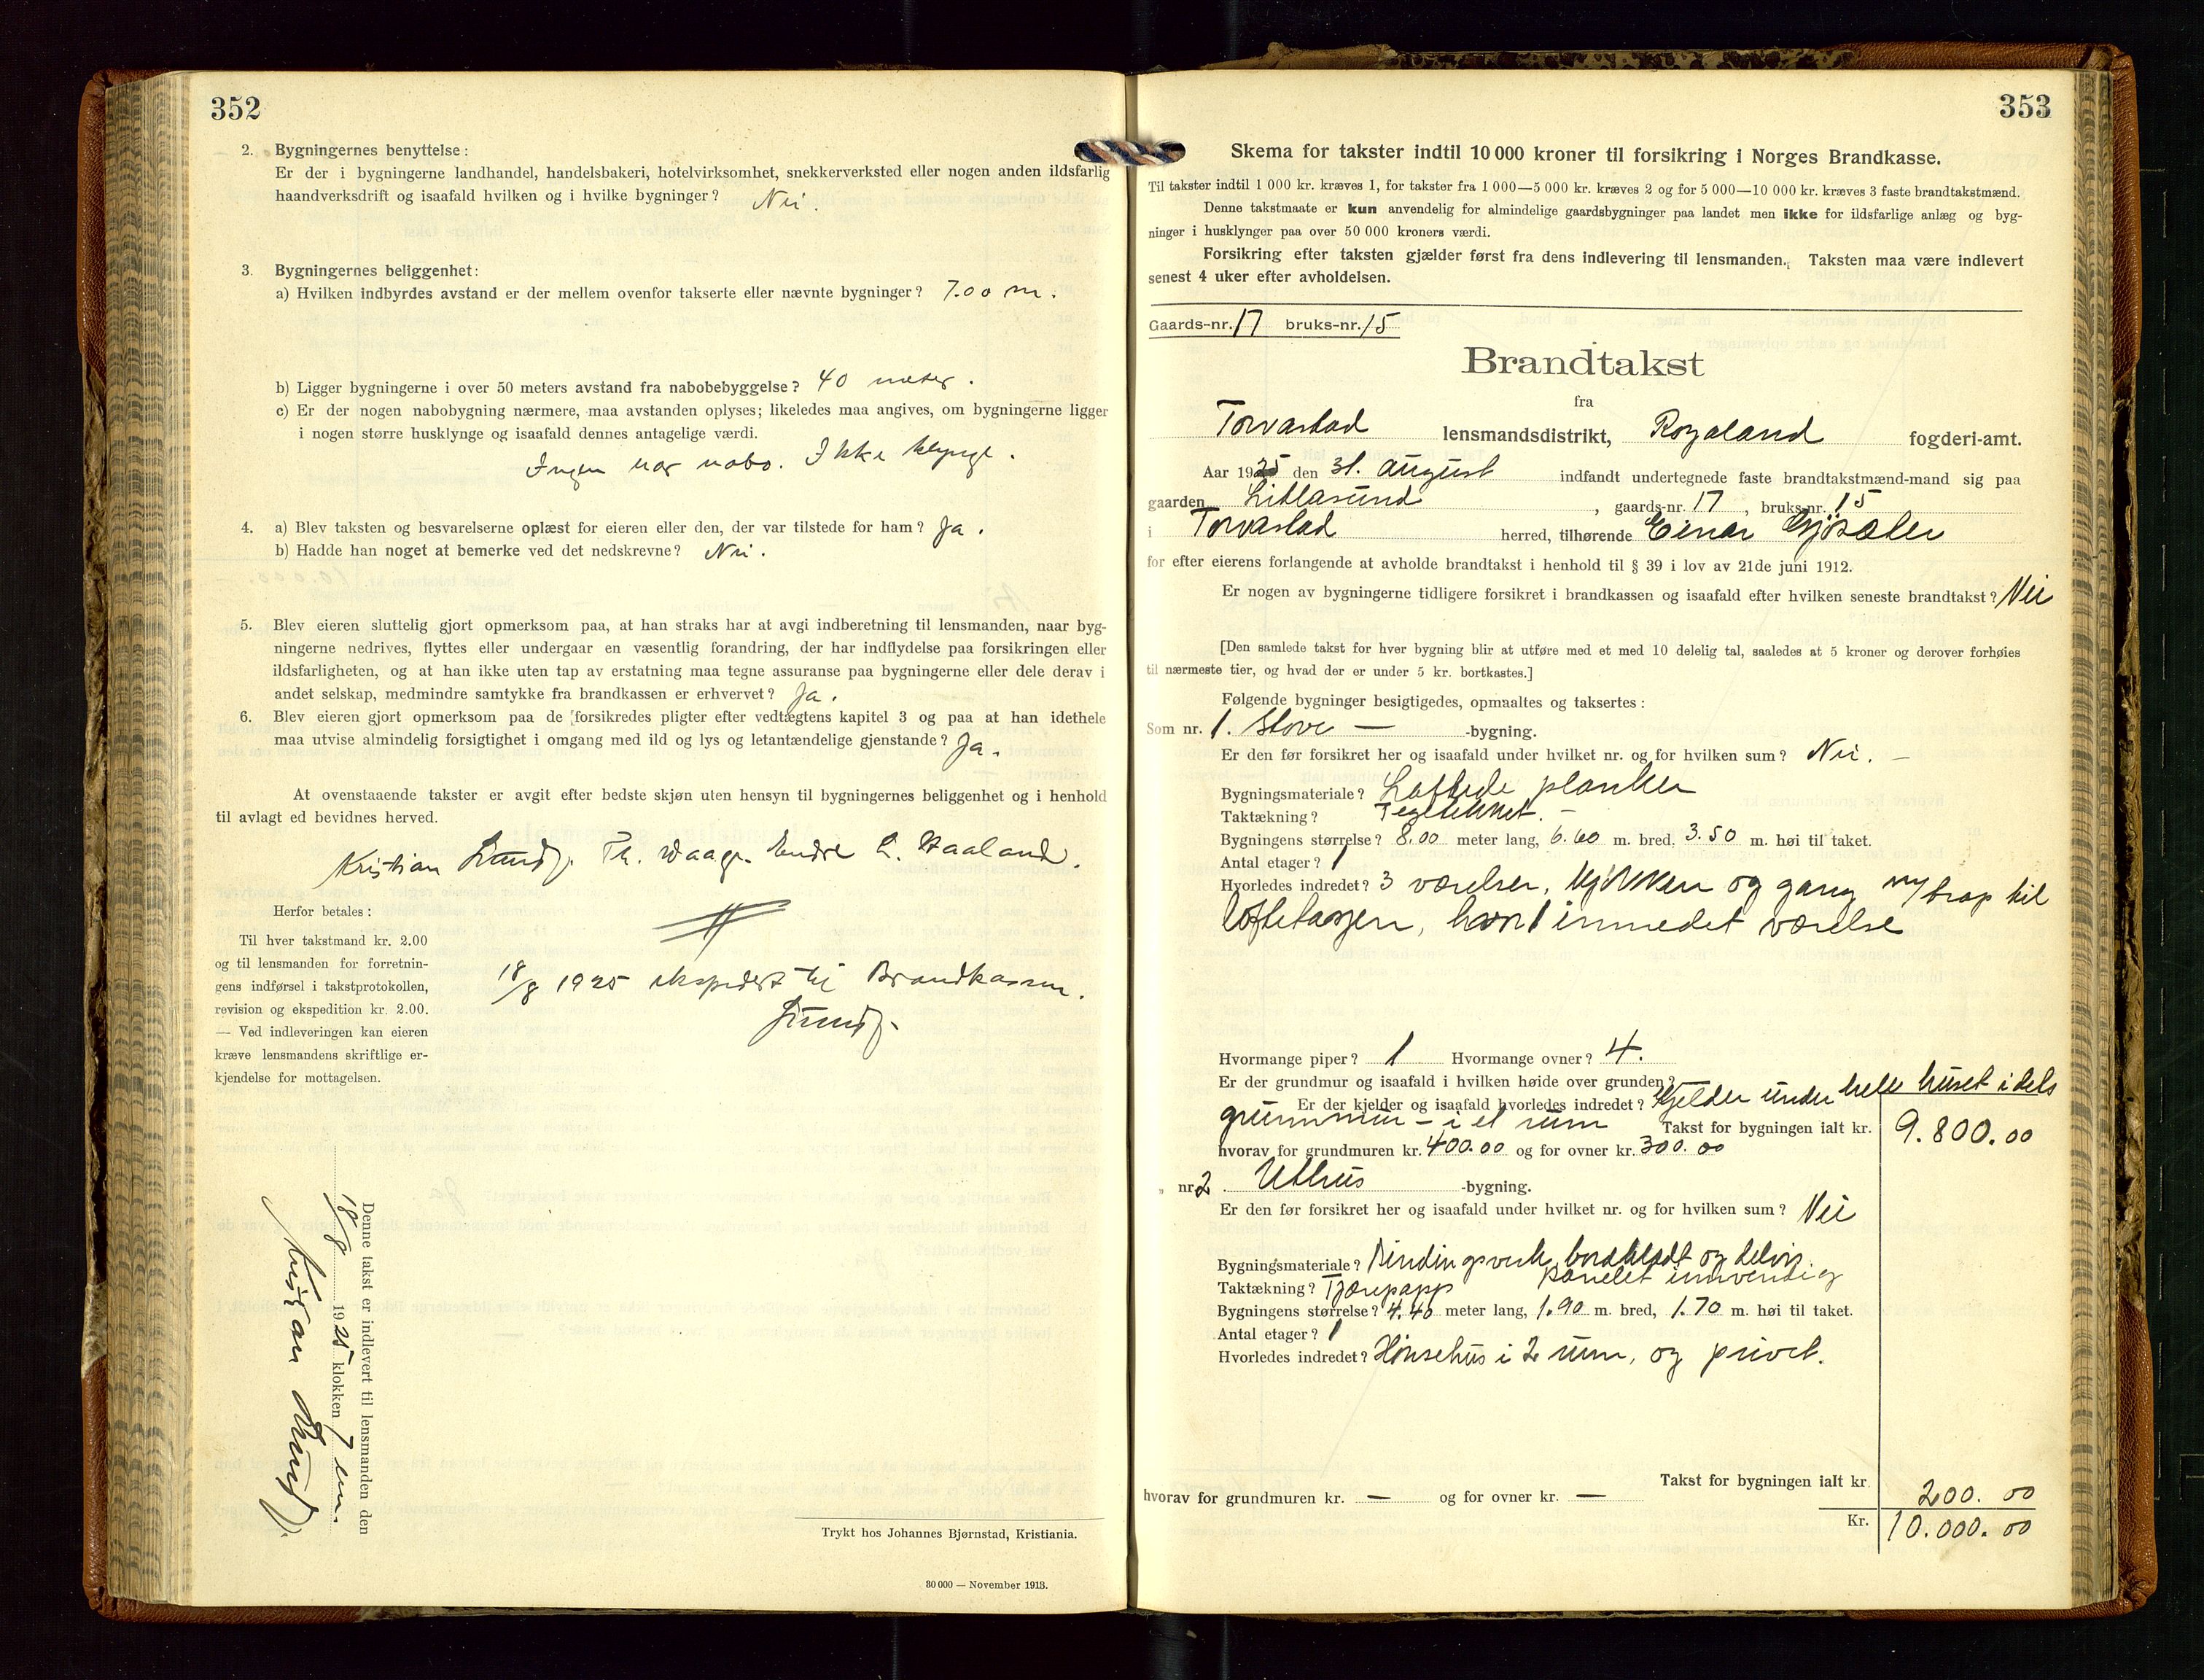 352
2. Bygningernes benyttelse:
Er der i bygningerne landhandel, handelsbakeri, hotelvirksomhet, snekkerverksted eller nogen anden ildsfarlig
haandverksdrift og isaafald hvilken og i hvilke bygninger? Nei.
3. Bygningernes beliggenhet:
a) Hvilken indbyrdes avstand er der mellem ovenfor takserte eller nævnte bygninger? 7.00 m.
b) Ligger bygningerne i over 50 meters avstand fra nabobebyggelse? 40 meter.
c) Er der nogen nabobygning nærmere, maa avstanden oplyses; likeledes maa angives, om bygningerne ligger
i nogen større husklynge og isaafald dennes antagelige værdi.
Ingen nær nabo. Ikke klynge.
4. a) Blev taksten og besvarelserne oplæst for eieren eller den, der var tilstede for ham? Ja.
b) Hadde han noget at bemerke ved det nedskrevne? Nei.
5. Blev eieren sluttelig gjort opmerksom paa, at han straks har at avgi indberetning til lensmanden, naar byg-
ningerne nedrives, flyttes eller undergaar en væsentlig forandring, der har indflydelse paa forsikringen eller
ildsfarligheten, og at han ikke uten tap av erstatning maa tegne assuranse paa bygningerne eller dele derav i
andet selskap, medmindre samtykke fra brandkassen er erhvervet? Ja.
6. Blev eieren gjort opmerksom paa de forsikredes pligter efter vedtægtens kapitel 3 og paa at han idethele
maa utvise almindelig forsigtighet i omgang med ild og lys og letantændelige gjenstande? Ja.
At ovenstaaende takster er avgit efter bedste skjøn uten hensyn til bygningernes beliggenhet og i henhold
til avlagt ed bevidnes herved.
Kristian Lund. Th. Waage. Endre L. Haaland.
Herfor betales:
Til hver takstmand kr. 2.00
og til lensmanden for forretnin-
gens indførsel i takstprotokollen,
revision og ekspedition kr. 2.00.
— Ved indleveringen kan eieren
kræve lensmandens skriftlige er-
kjendelse for mottagelsen.
18/8 1925 ekspedert til Brandkassen.
Lund
Denne takst er indlevert til lensmanden den
18/8 1925 klokken 7 em.
Kristian Lund.
Trykt hos Johannes Bjørnstad, Kristiania.
30 000 — November 1913.
353
Skema for takster indtil 10 000 kroner til forsikring i Norges Brandkasse.
Til takster indtil 1 000 kr. kræves 1, for takster fra 1 000—5 000 kr. kræves 2 og for 5 000—10 000 kr. kræves 3 faste brandtakstmænd.
Denne takstmaate er kun anvendelig for almindelige gaardsbygninger paa landet men ikke for ildsfarlige anlæg og byg-
ninger i husklynger paa over 50 000 kroners værdi.
Forsikring efter taksten gjælder først fra dens indlevering til lensmanden. Taksten maa være indlevert
senest 4 uker efter avholdelsen.
Gaards-nr. 17 bruks-nr. 15
Brandtakst
fra
Torvastad lensmandsdistrikt, Rogaland fogderi-amt.
Aar 1925 den 31. august indfandt undertegnede faste brandtakstmænd-mand sig paa
gaarden Litlasund, gaards-nr. 17, bruks-nr. 15
i Torvastad herred, tilhørende Einar
for efter eierens forlangende at avholde brandtakst i henhold til § 39 i lov av 21de juni 1912.
Er nogen av bygningerne tidligere forsikret i brandkassen og isaafald efter hvilken seneste brandtakst? Nei
[Den samlede takst for hver bygning blir at utføre med et med 10 delelig tal, saaledes at 5 kroner og derover forhøies
til nærmeste tier, og hvad der er under 5 kr. bortkastes.]
Følgende bygninger besigtigedes, opmaaltes og taksertes:
Som nr. 1. Stove — -bygning.
Er den før forsikret her og isaafald under hvilket nr. og for hvilken sum? Nei. —
Bygningsmateriale? Laftede planker
Taktækning? Tegltækket. —
Bygningens størrelse? 8.00 meter lang, 6.60 m. bred, 3.50 m. høi til taket.
Antal etager? 1
Hvorledes indredet? 3 værelser, kjøkken og gang m/ trap til
loftetagen, hvor 1 innredet værelse
Hvormange piper? 1 Hvormange ovner? 4.
Er der grundmur og isaafald i hvilken høide over grunden?
Er der kjelder og isaafald hvorledes indredet? Kjelder under hele huset i dels
grunnmur – i et rum Takst for bygningen ialt kr. 9.800.00
hvorav for grundmuren kr. 400.00 og for ovner kr. 300.00
„ nr. 2 Uthus -bygning.
Er den før forsikret her og isaafald under hvilket nr. og for hvilken sum? Nei
Bygningsmateriale? Bindingsverk, bordklædt og delvis.
panelet innvendig
Taktækning? Tjærepapp
Bygningens størrelse? 4.40 meter lang, 1.90 m. bred, 1.70 m. høi til taket.
Antal etager? 1
Hvorledes indredet? Hønsehus i 2 rum, og privet.
Takst for bygningen ialt kr. 200.00
hvorav for grundmuren kr. — og for ovner kr. —
Kr. 10.000.00